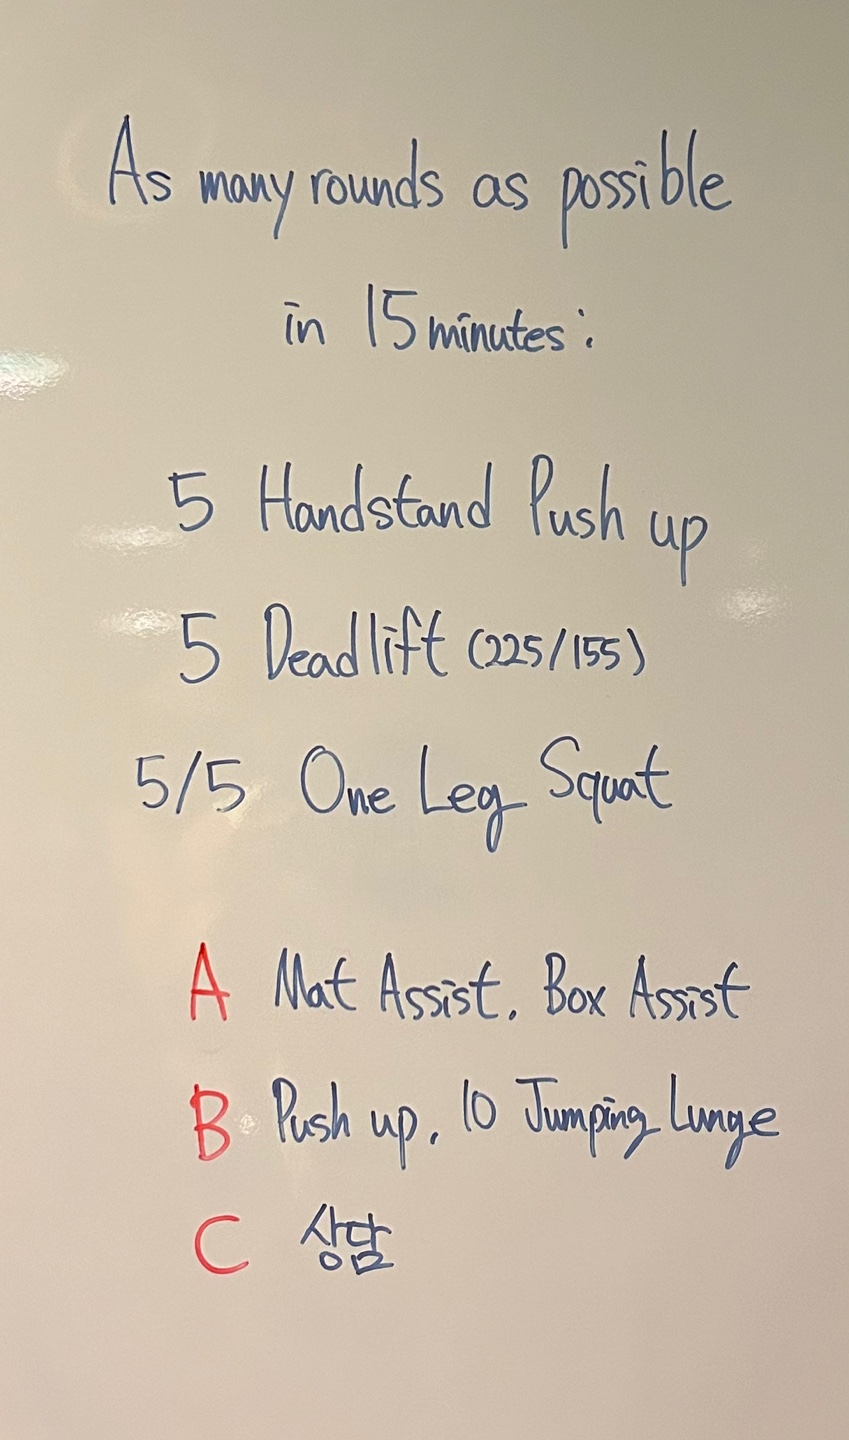 As many rounds as possible
in 15 minutes:
5 Handstand Push up
5 Deadlift (225/155)
5/5 One Leg Squat
A Mat Assist. Box Assist
B Push up. 10 Jumping Lunge
C 상담